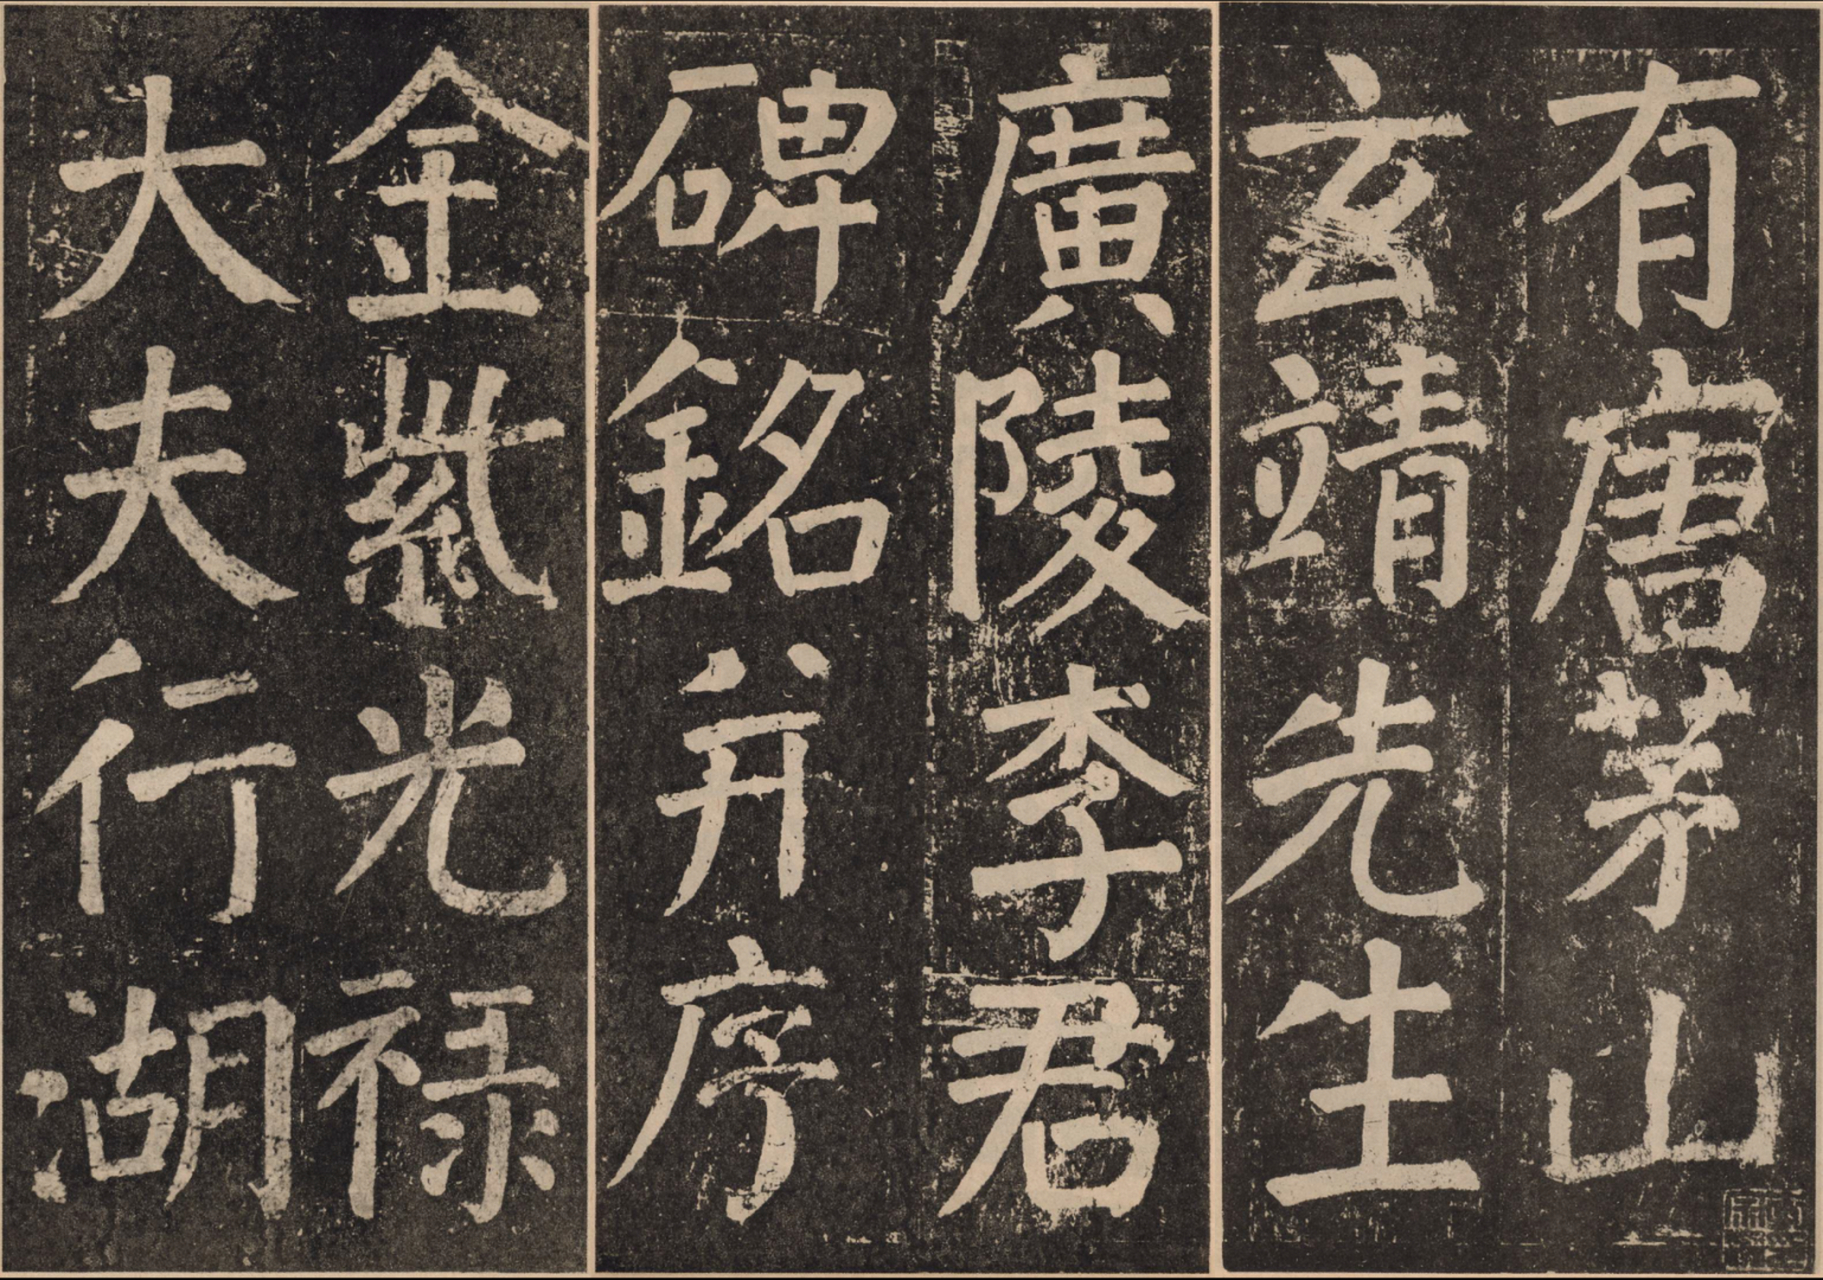 有唐茅山
玄靖先生
廣陵李君
碑銘并序
金紫光祿
大夫行湖